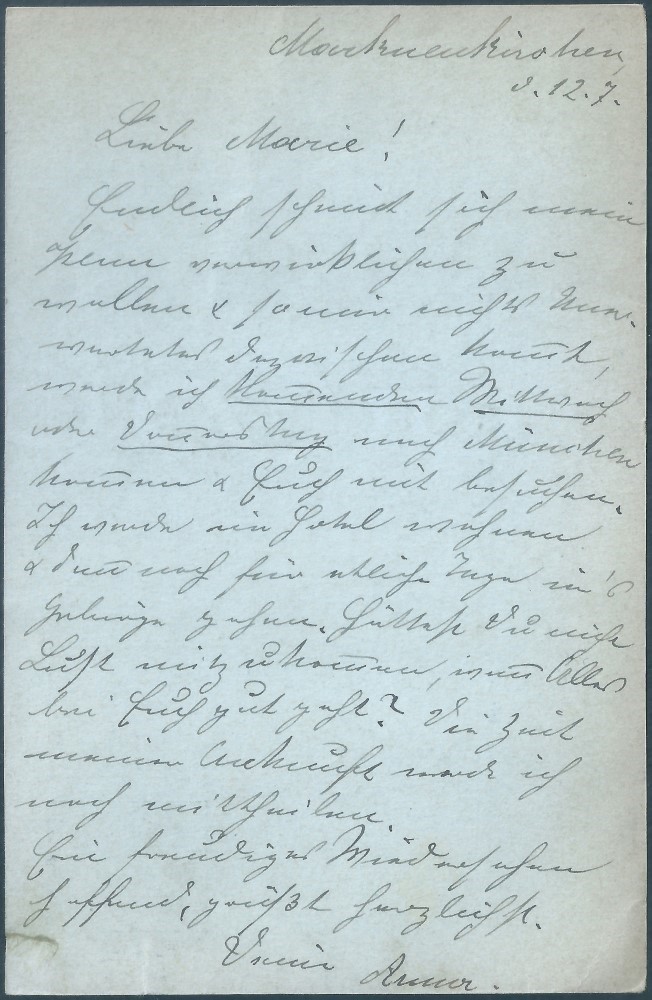 Markneukirchen,
d. 12. 7.
Liebe Marie!
Endlich scheint sich mein
Plan verwirklichen zu
wollen & so mir nichts Uner-
wartetes dazwischen kom̅t,
werde ich kom̅enden Mittwoch
oder Don̅erstag nach München
kom̅en & Euch mit besuchen.
Ich werde im Hotel wohnen
& dan̅ noch für etliche Tage in's
Gebirge gehen. Hättest Du nicht
Lust mitzukom̅en, wen̅ Alles
bei Euch gut geht? Die Zeit
meiner Ankunft werde ich
noch mittheilen.
Ein freudiges Wiedersehen
hoffend, grüßt herzlichst.
Deine Anna.